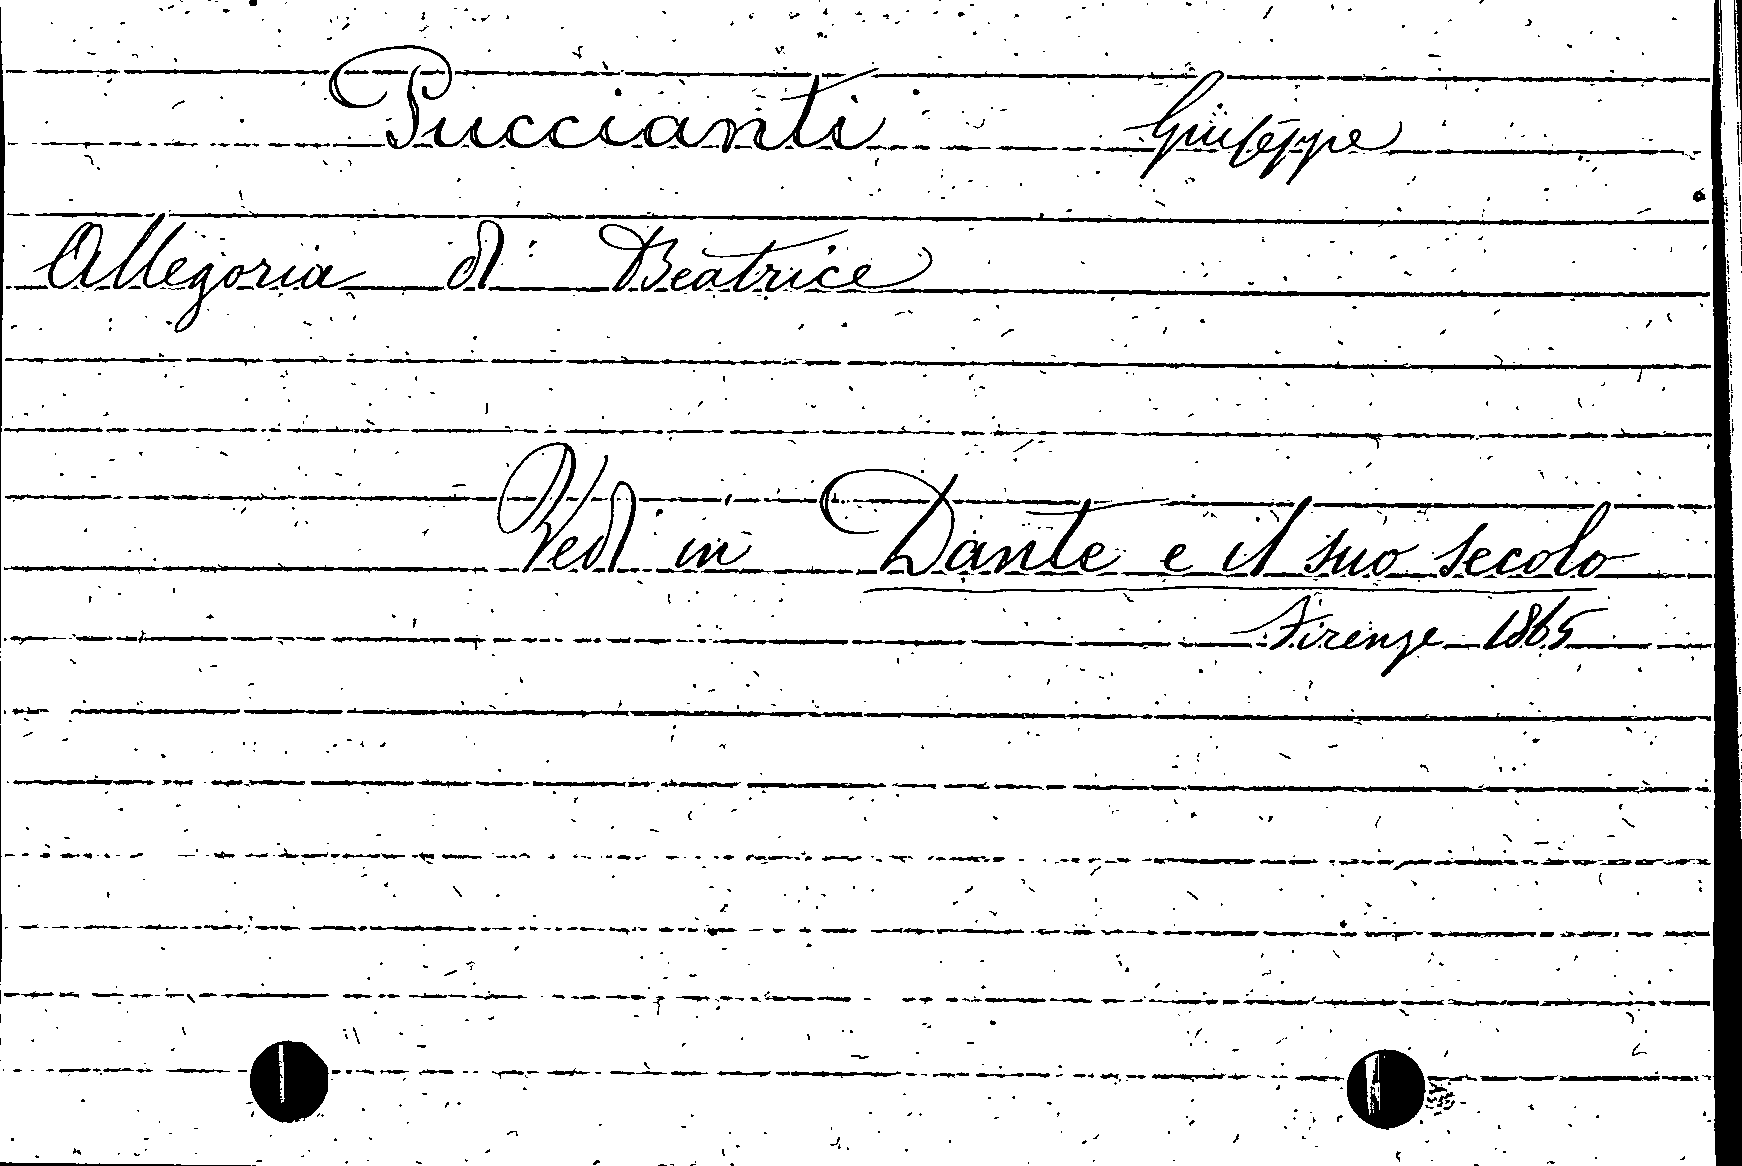 Puccianti Giuseppe
Allegoria di Beatrice
Vedi in Dante e il suo secolo
Firenze 1865